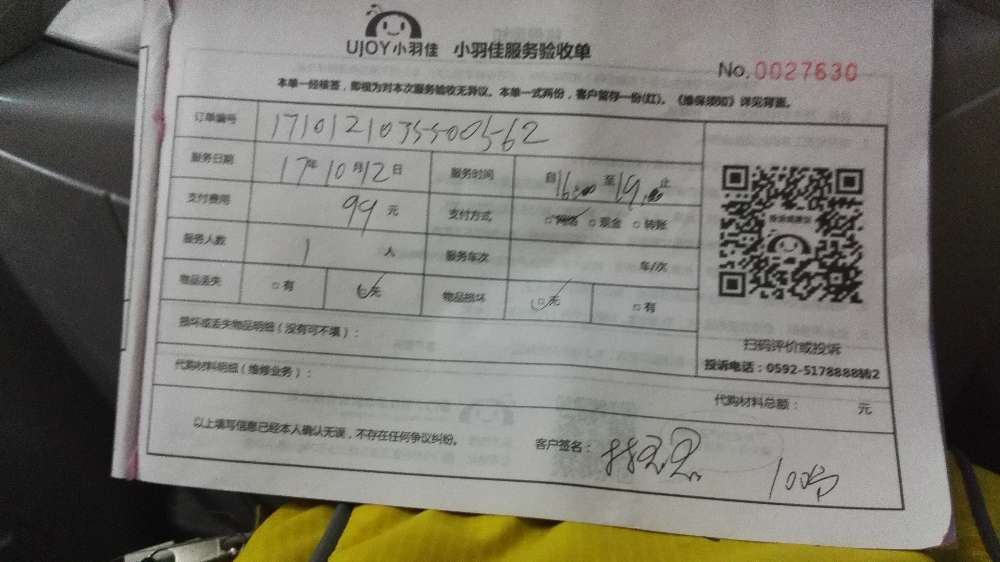 UJOY小羽佳 小羽佳服务验收单
No.0027630
本单一经核签，即视为对本次服务验收无异议。本单一式两份，客户留存一份(红)。《维保须知》详见背面。
订单编号 1710121035500562
服务日期 17年10月12日 服务时间 自16:00至19:00止
支付费用 99元 支付方式 □网络 □现金 □转账
服务人数 1人 服务车次 车/次
物品丢失 □有 □无 物品损坏 □无 □有
损坏或丢失物品明细（没有可不填）：
扫码评价或投诉
投诉电话：0592-5178888转2
代购材料明细（维修业务）：
代购材料总额： 元
以上填写信息已经本人确认无误，不存在任何争议纠纷。 客户签名：